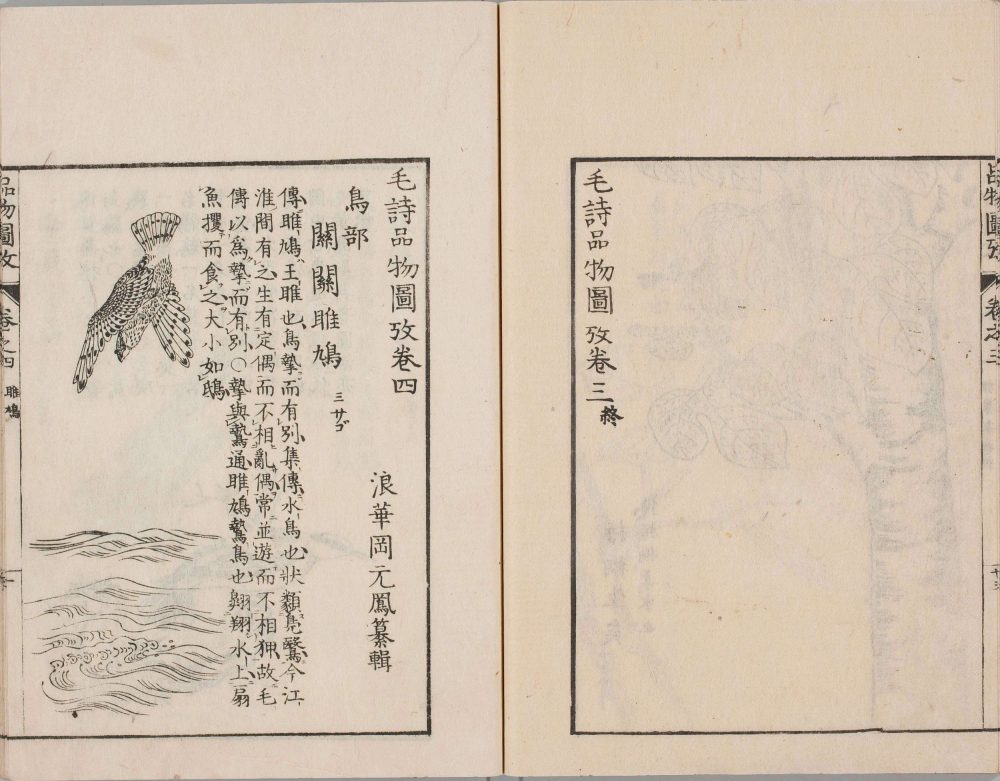 品物圖攷 卷之三
毛詩品物圖攷卷三終
毛詩品物圖攷卷四
浪華岡元鳳纂輯
鳥部
關關雎鳩 ミサゴ
傳雎鳩王雎也鳥摯而有別集傳水鳥也狀類鳧鷖今江
淮間有之生有定偶而不相亂偶常並遊而不相狎故毛
傳以爲摯而有別○摯與鷙通雎鳩鷙鳥也翱翔水上扇
魚攫而食之大小如鴟
品物圖攷 卷之四 雎鳩 一